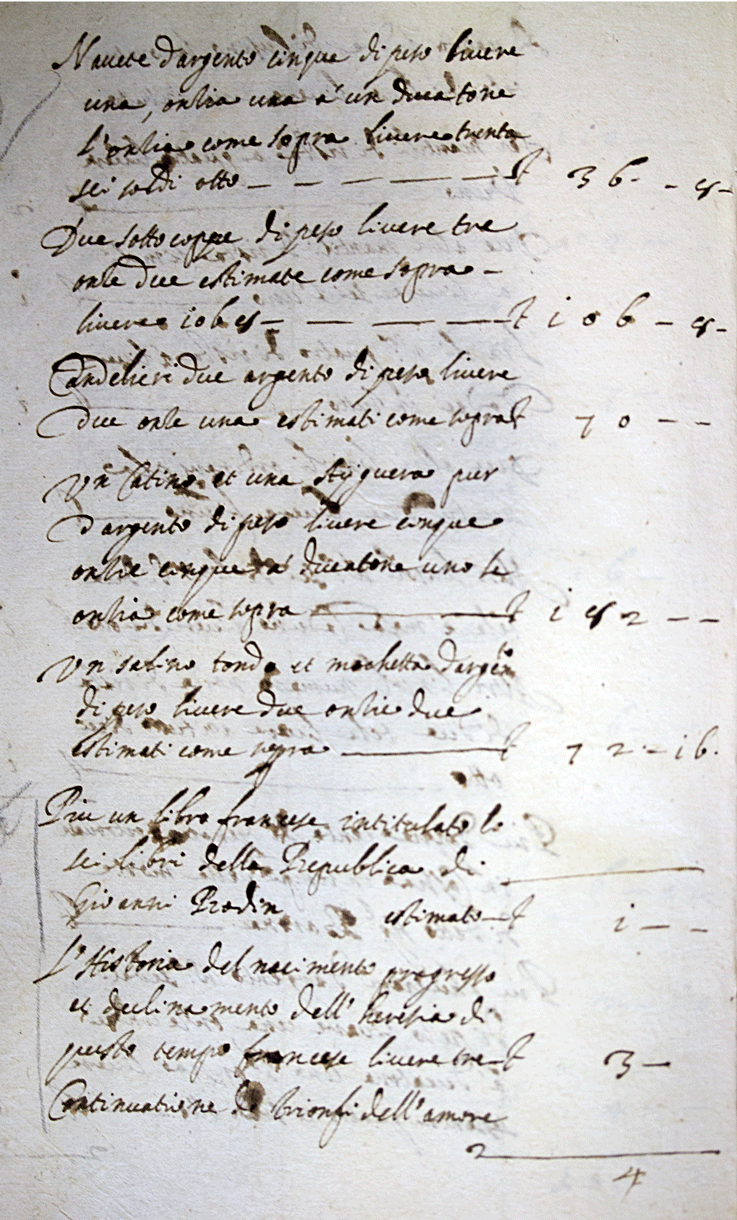 Navete d'argento cinque di peso livere
una, onlia una a' un ducatone
l'onlia come sopra livere trenta
sei soldi otto — — — — — 36 - - 8 -
Due sottocoppe di peso livere tre
onle due estimate come sopra -
livere 106 8 — — — 106 - 8 -
Candelieri due argento di peso livere
due onle una estimati come sopra 70 - -
Un Catino et una pur
d'argento di peso livere cinque
onlie cinque a' ducatone uno le
onlia come sopra — 182 - -
Un salino tondo et mochetta d'argto
di peso livere due onlie due
estimati come sopra — 72 - 16.
Piu un libro francese intitulato le
sei libri della Republica di
Giovanni Bodin estimato — 1 - -
L'Historia del nacimento progresso
et declinamento dell' heresia di
questo tempo francese livere tre 3 -
Continuatione de trionfi dell'amore
2
4